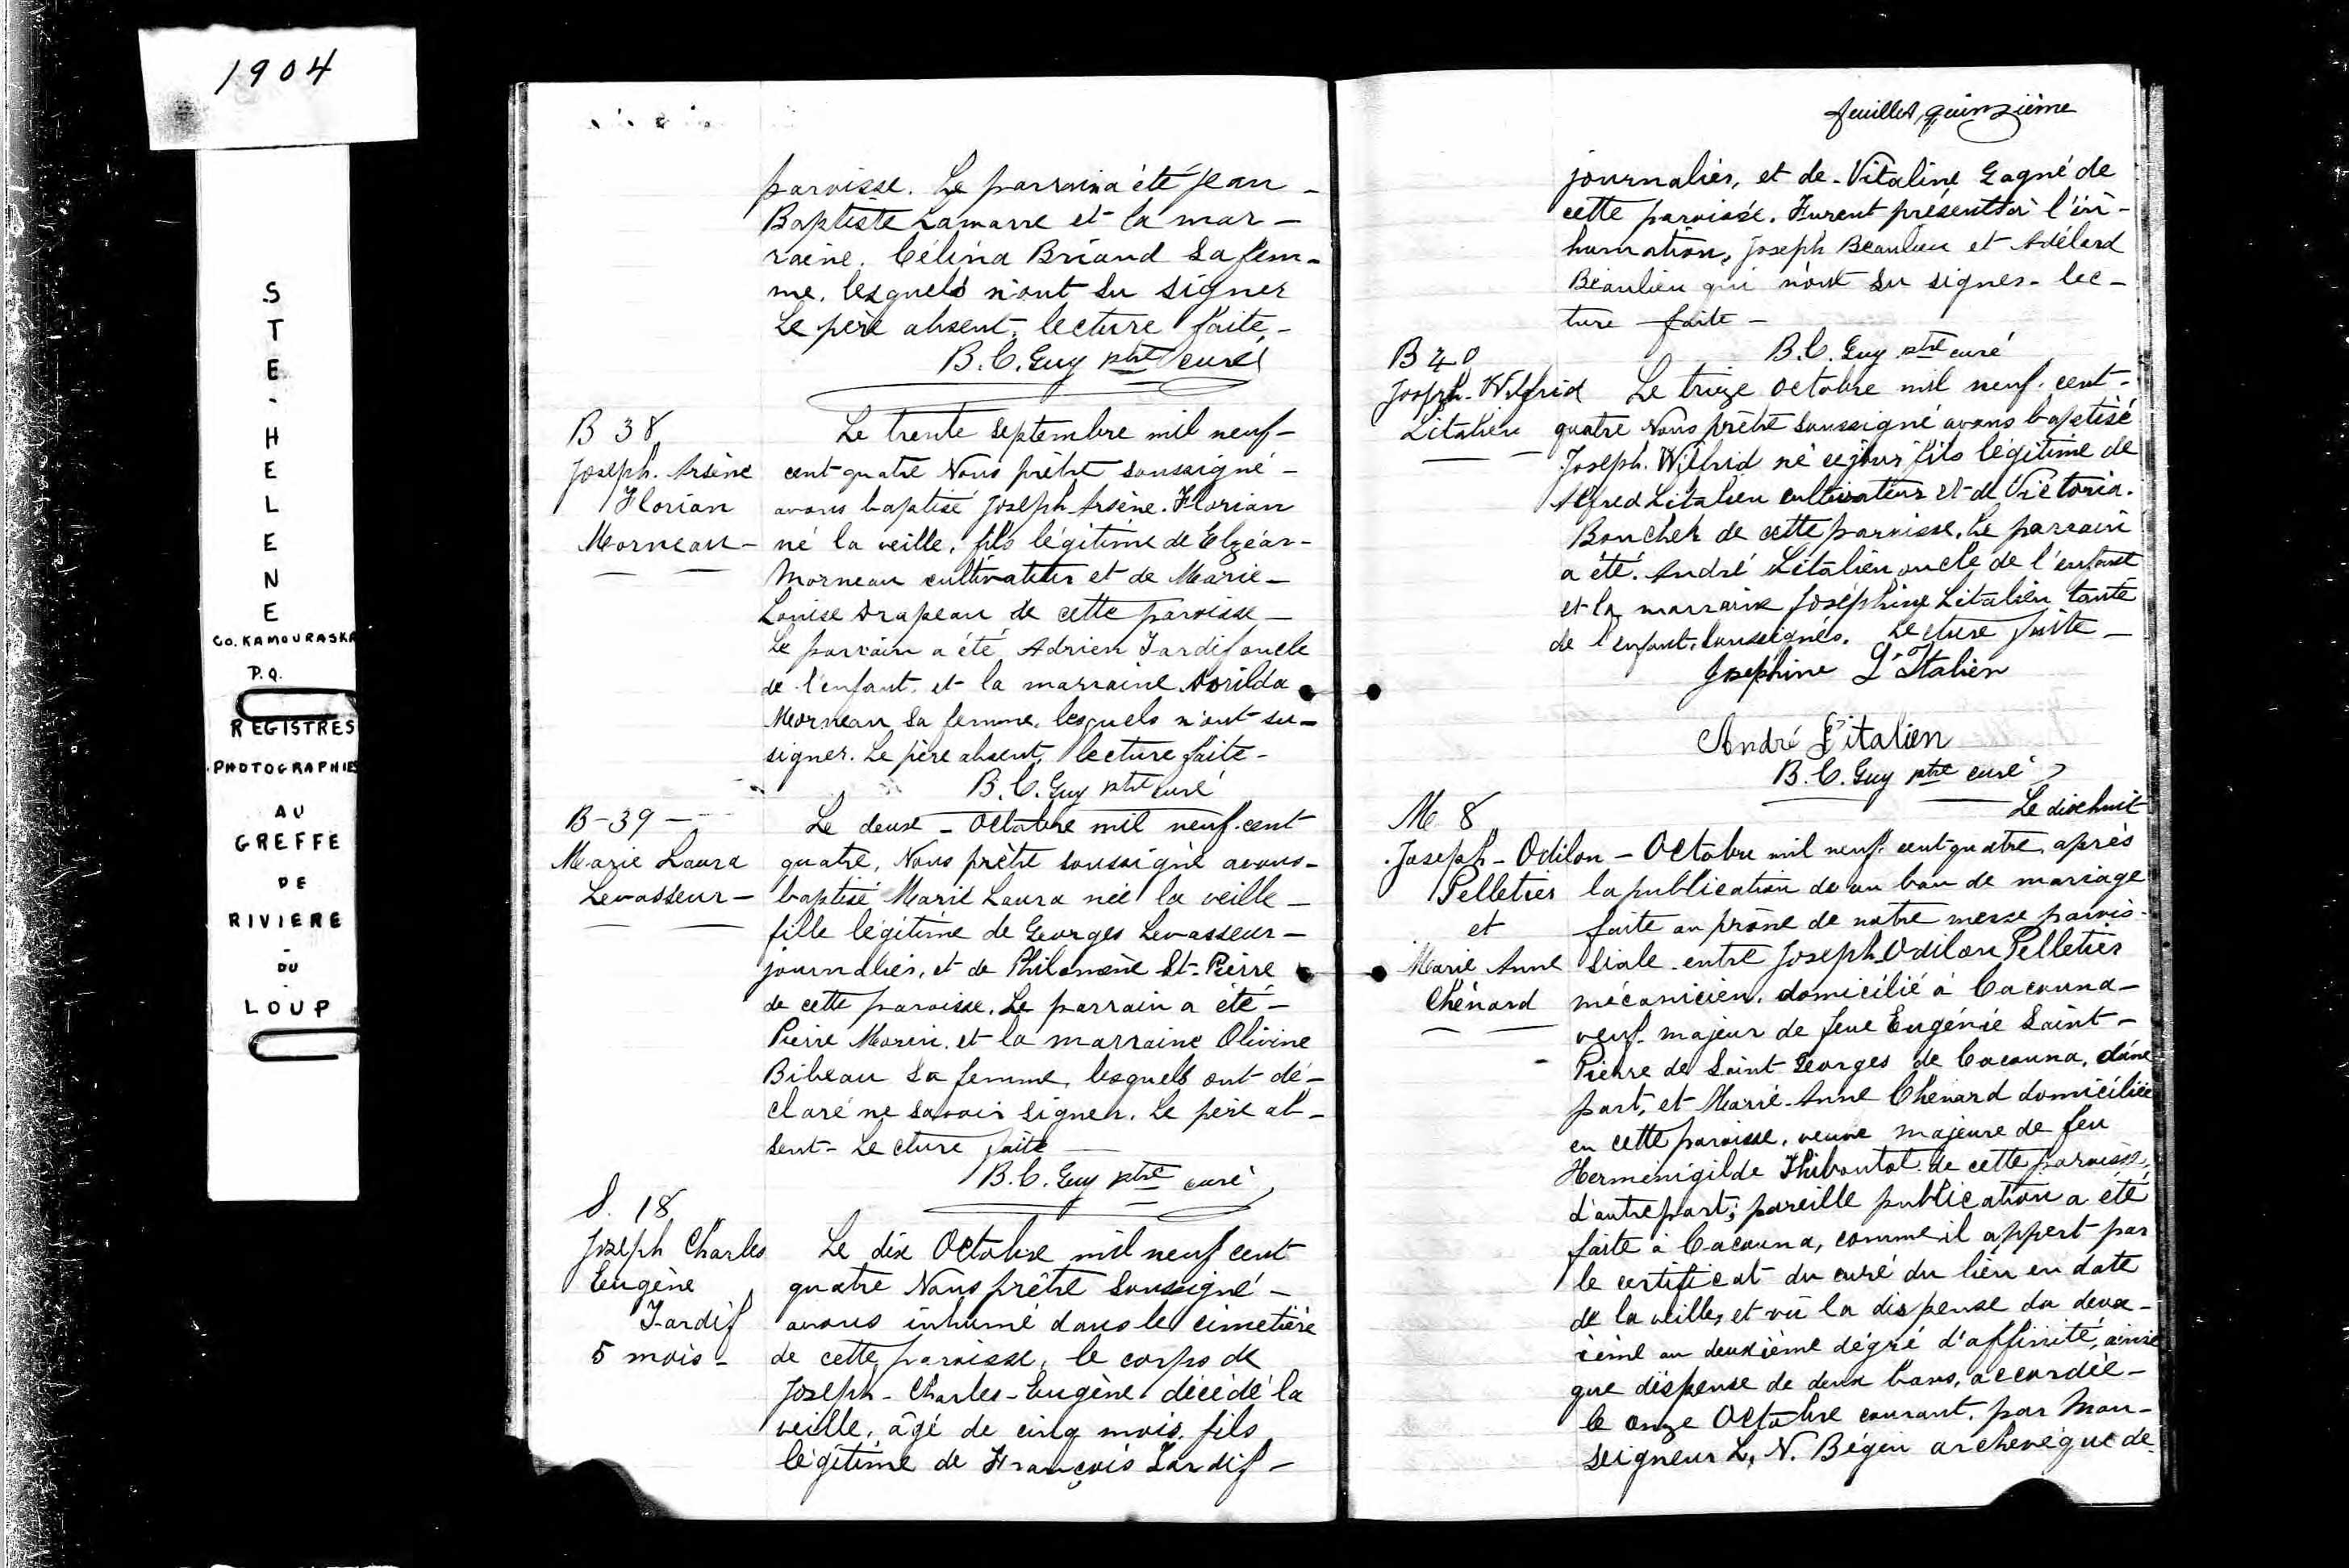 1904
STE-HELENE
CO. KAMOURASKA
P.Q.
REGISTRES
PHOTOGRAPHIES
AU
GREFFE
DE
RIVIERE
-
DU
-
LOUP
paroisse. Le parrain a été Jean-
Baptiste Lamarre et la mar-
raine. Célina Briand sa fem-
me. lesquels n'ont su signer
Le père absent. lecture faite.-
B. C. Guy ptre curé
B 38
Joseph. Arsène
Florian
Morneau-
Le trente septembre mil neuf-
cent-quatre Nous prêtre soussigné-
avons baptisé Joseph-Arsène. Florian
né la veille, fils légitime de Elzéar-
Morneau cultivateur et de Marie-
Louise Drapeau de cette paroisse-
Le parrain a été Adrien Tardif oncle
de l'enfant, et la marraine Dorilda
Morneau sa femme, lesquels n'ont su-
signer. Le père absent, lecture faite-
B. C. Guy ptre curé
B-39-
Marie Laura
Levasseur-
Le deux-Octobre mil neuf-cent
quatre, Nous prêtre soussigné avons-
baptisé Marie Laura née la veille-
fille légitime de Georges Levasseur-
journalier, et de Philomène St-Pierre
de cette paroisse. Le parrain a été-
Pierre Morin, et la marraine Olivine
Bibeau sa femme, lesquels ont dé-
claré ne savoir signer. Le père ab-
sent- Lecture faite
B. C. Guy ptre curé
S. 18
Joseph Charles
Eugène
Tardif
5 mois-
Le dix Octobre mil neuf cent
quatre Nous prêtre soussigné-
avons inhumé dans le cimetière
de cette paroisse, le corps de
Joseph-Charles-Eugène décédé la
veille, âgé de cinq mois, fils
légitime de François Tardif-
feuillet quinzième
journalier, et de Vitaline Gagné de
cette paroisse. Furent présents à l'in-
humation, Joseph Beaulieu et Adélard
Beaulieu qui n'ont su signer- lec-
ture faite-
B. C. Guy ptre curé
B 40
Joseph-Wilfrid
Litalien
Le treize Octobre mil neuf-cent-
quatre Nous prêtre soussigné avons baptisé
Joseph. Wilfrid né ce jour fils légitime de
Alfred Litalien cultivateur et de Victoria.
Boucher de cette paroisse. Le parrain
a été. André Litalien oncle de l'enfant
et la marraine Joséphine Litalien tante
de l'enfant, soussignés. Lecture faite-
Josephine L'Italien
André L'italien
B. C. Guy ptre curé
M 8
Joseph-Odilon
Pelletier
et
Marie Anne
Chénard
Le dixhuit
Octobre mil neuf-cent-quatre, après
la publication de un ban de mariage
faite au prône de notre messe parois-
siale entre Joseph-Odilon Pelletier
mécanicien, domicilié à Cacouna-
veuf majeur de feue Eugénie Saint-
Pierre de Saint Georges de Cacouna, d'une
part, et Marie-Anne Chénard domiciliée
en cette paroisse, veuve majeure de feu
Herménigilde Thiboutot de cette paroisse,
d'autre part; pareille publication a été
faite à Cacouna, comme il appert par
le certificat du curé du lieu en date
de la veille, et vu la dispense du deux-
ième au deuxième dégré d'affinité, ainsi
que dispense de deux bans, accordée-
le onze Octobre courant, par Mon-
seigneur L. N. Bégin archevêque de-